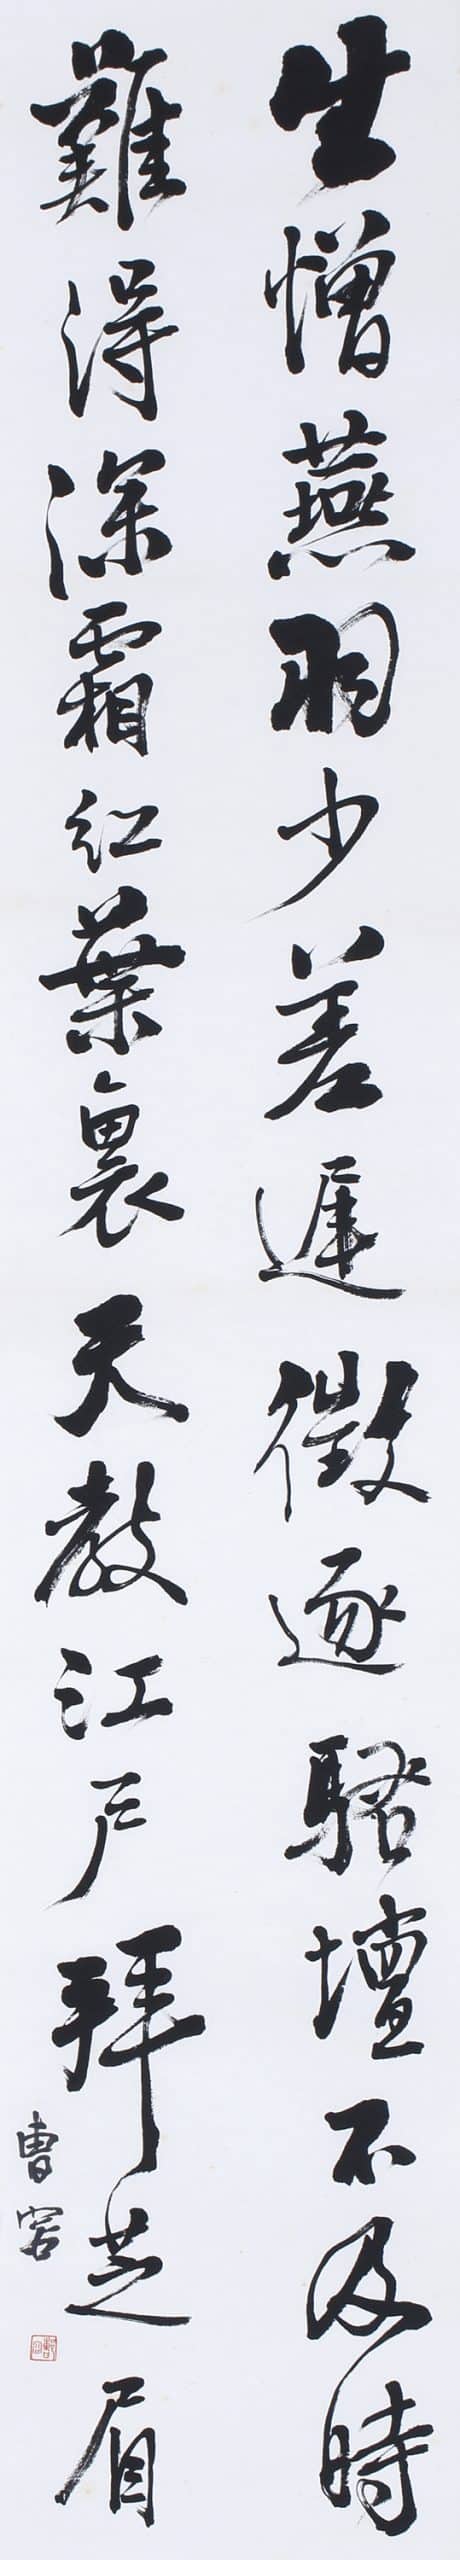 生憎燕羽少差遲徵逐騷壇不及時
難得深霜紅葉裏天教江戸拜芝眉
曹窘